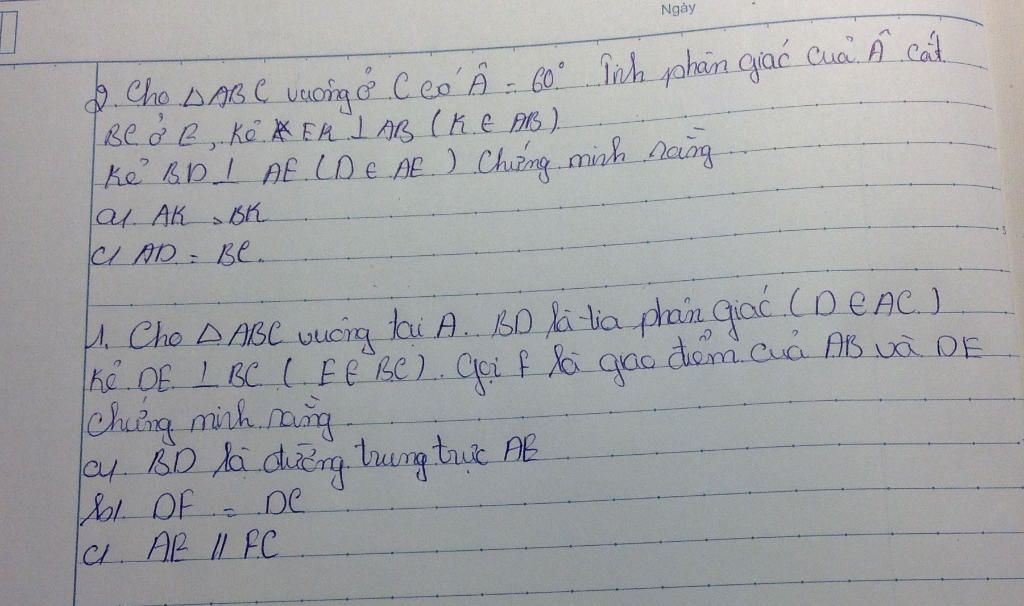 Ngày
2. Cho △ABC vuông ở C có Â = 60° Tính phân giác của Â cắt
BC ở E, kẻ EK ⊥ AB (K ∈ AB)
Kẻ BD ⊥ AE (D ∈ AE) Chứng minh rằng
a, AK = BK
c, AD = BC.
1. Cho △ABC vuông tại A. BD là tia phân giác (D ∈ AC)
Kẻ DE ⊥ BC (E ∈ BC). Gọi F là giao điểm của AB và DE
Chứng minh rằng
a, BD là đường trung trực AE
b, DF = DC
c, AE // FC